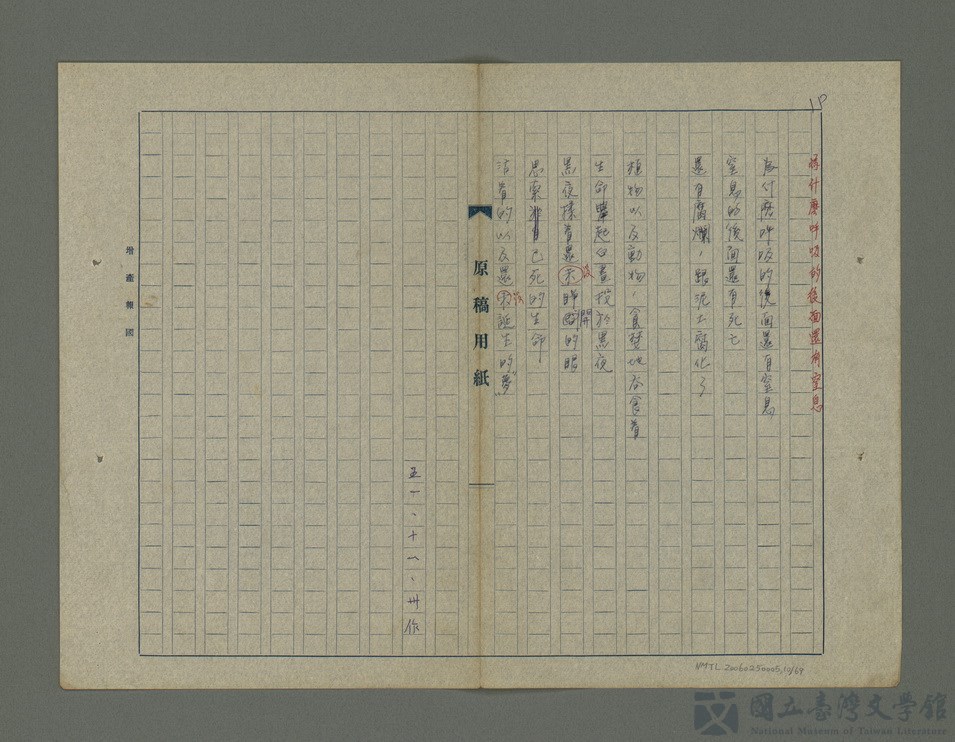 19
為什麼呼吸的後面還有窒息
為什麼呼吸的後面還有窒息
窒息的後面還有死亡
還有腐爛,跟泥土腐化了
植物以及動物,貪婪地吞食着
生命舉起白晝找於黑夜
黑夜揉着還未睜開的眼
沒
開
思索 已死的生命
活着的以及還未誕生的“夢”
沒
五一、十一、卅作
原稿用紙
增產報國
NMTL 20060250005,10/69
國立臺灣文學館
National Museum of Taiwan Literature